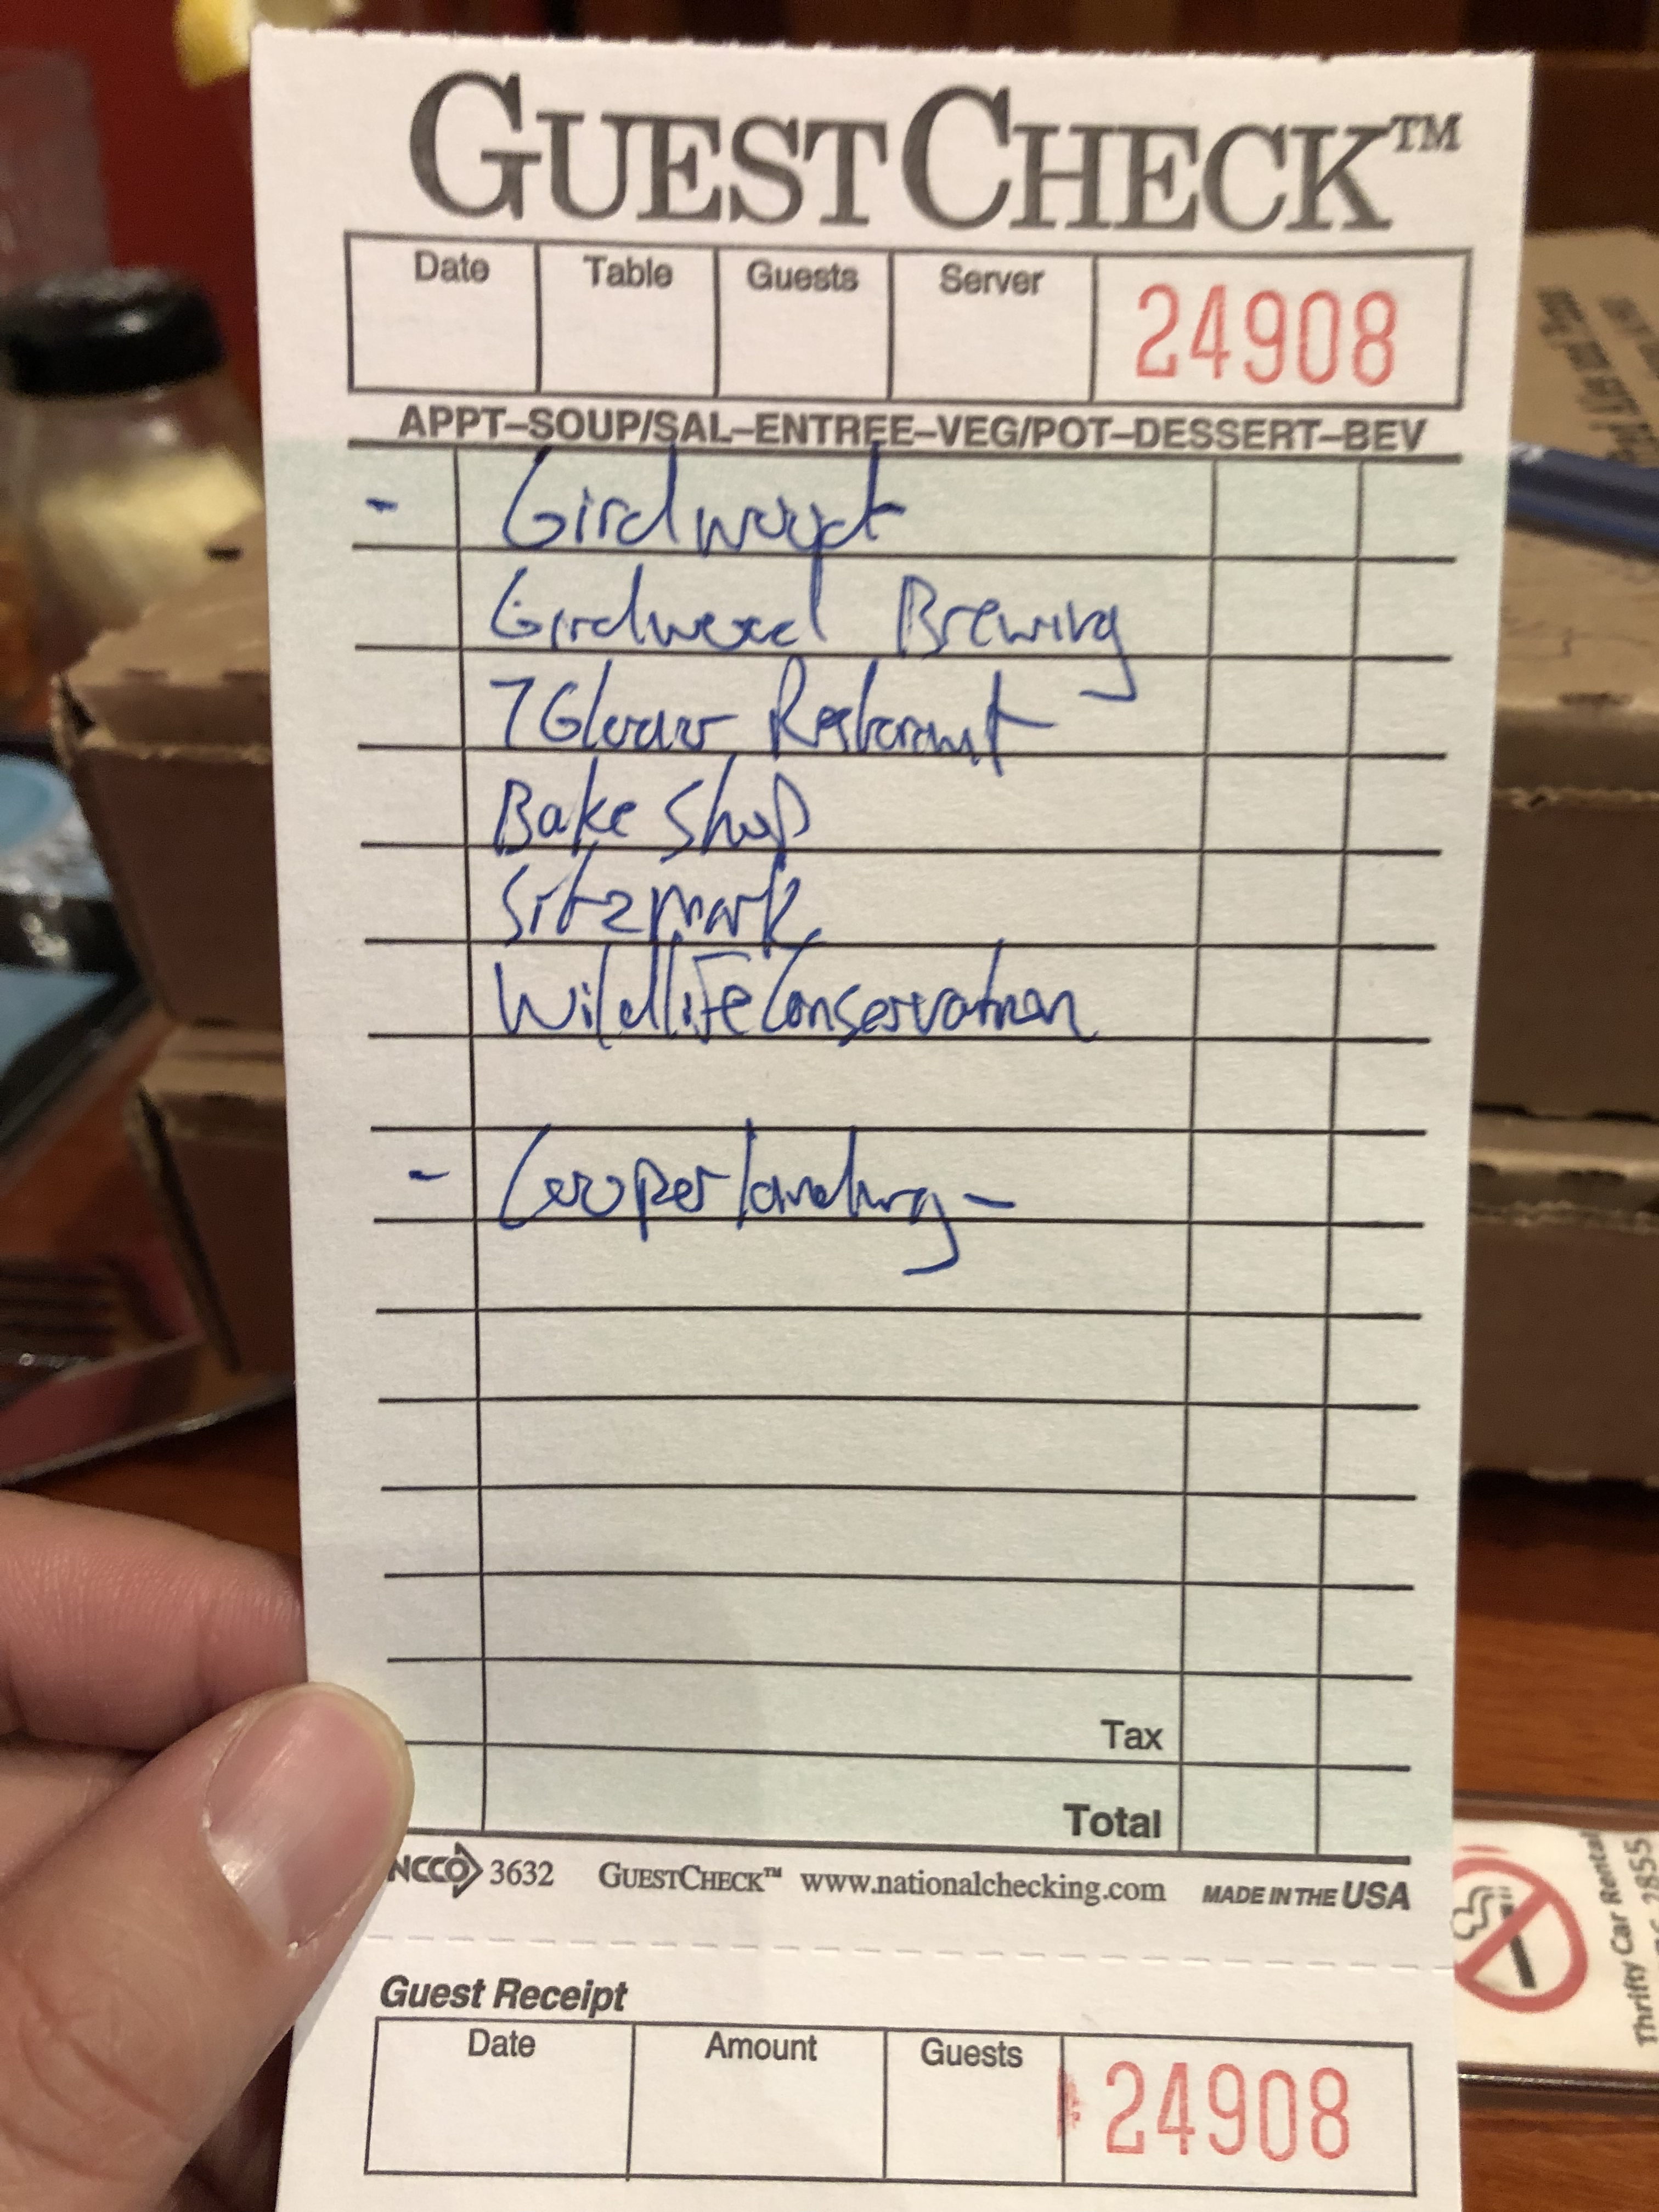 GUESTCHECK™
Date Table Guests Server 24908
APPT–SOUP/SAL–ENTREE–VEG/POT–DESSERT–BEV
- Girdwood
Girdwood Brewing
7 Glacier Restaraunt
Bake Shop
Sitzmark
WildliFe Conservation
- Cooper landing -
Tax
Total
NCCO 3632 GUESTCHECK™ www.nationalchecking.com MADE IN THE USA
Guest Receipt
Date Amount Guests 24908
Thrifty Car Rental
2855